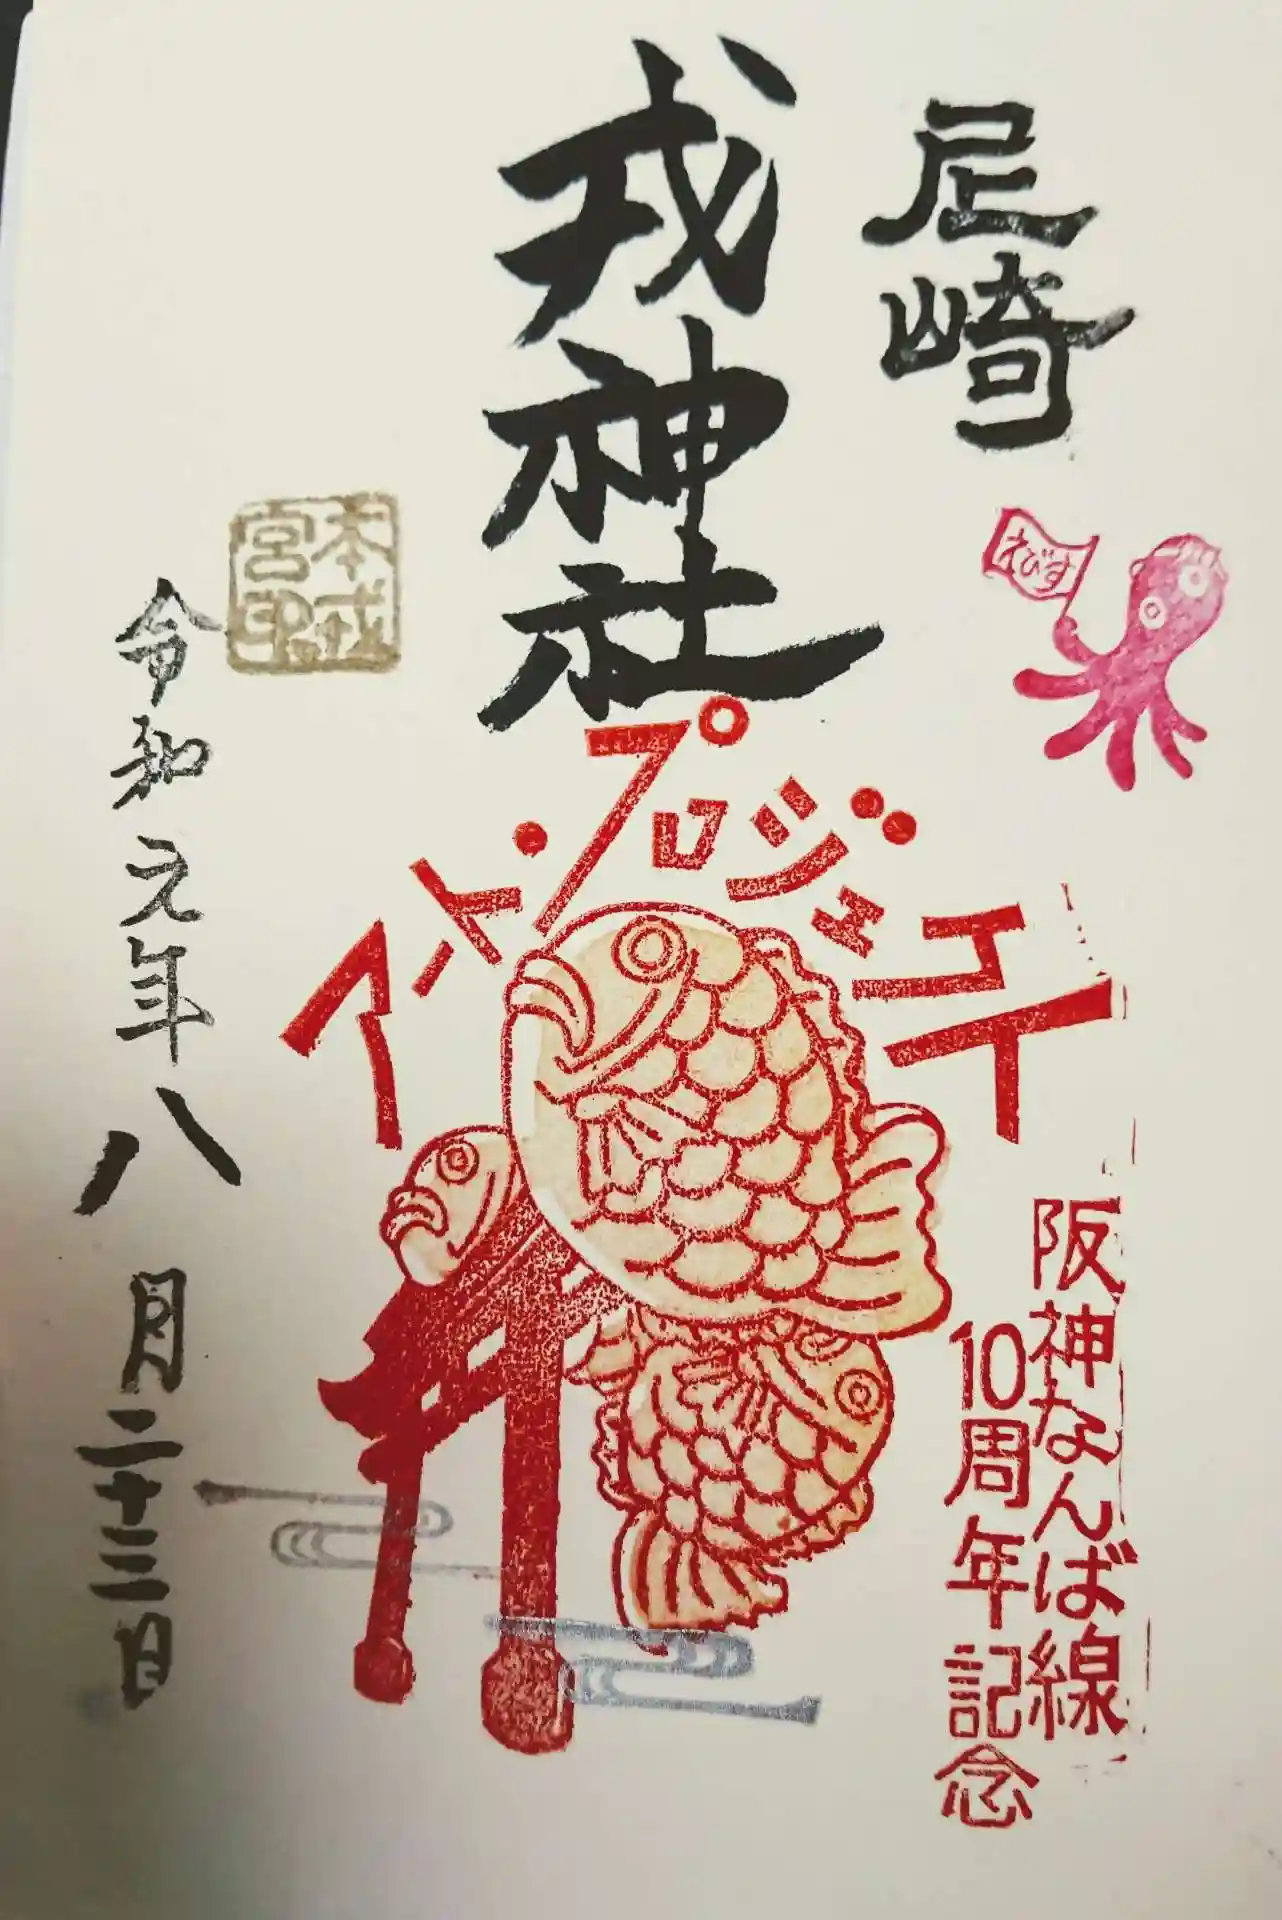 尼崎
えびす
戎神社
アート・プロジェクト
阪神なんば線
10周年記念
本戎
宮印
令和元年八月二十三日